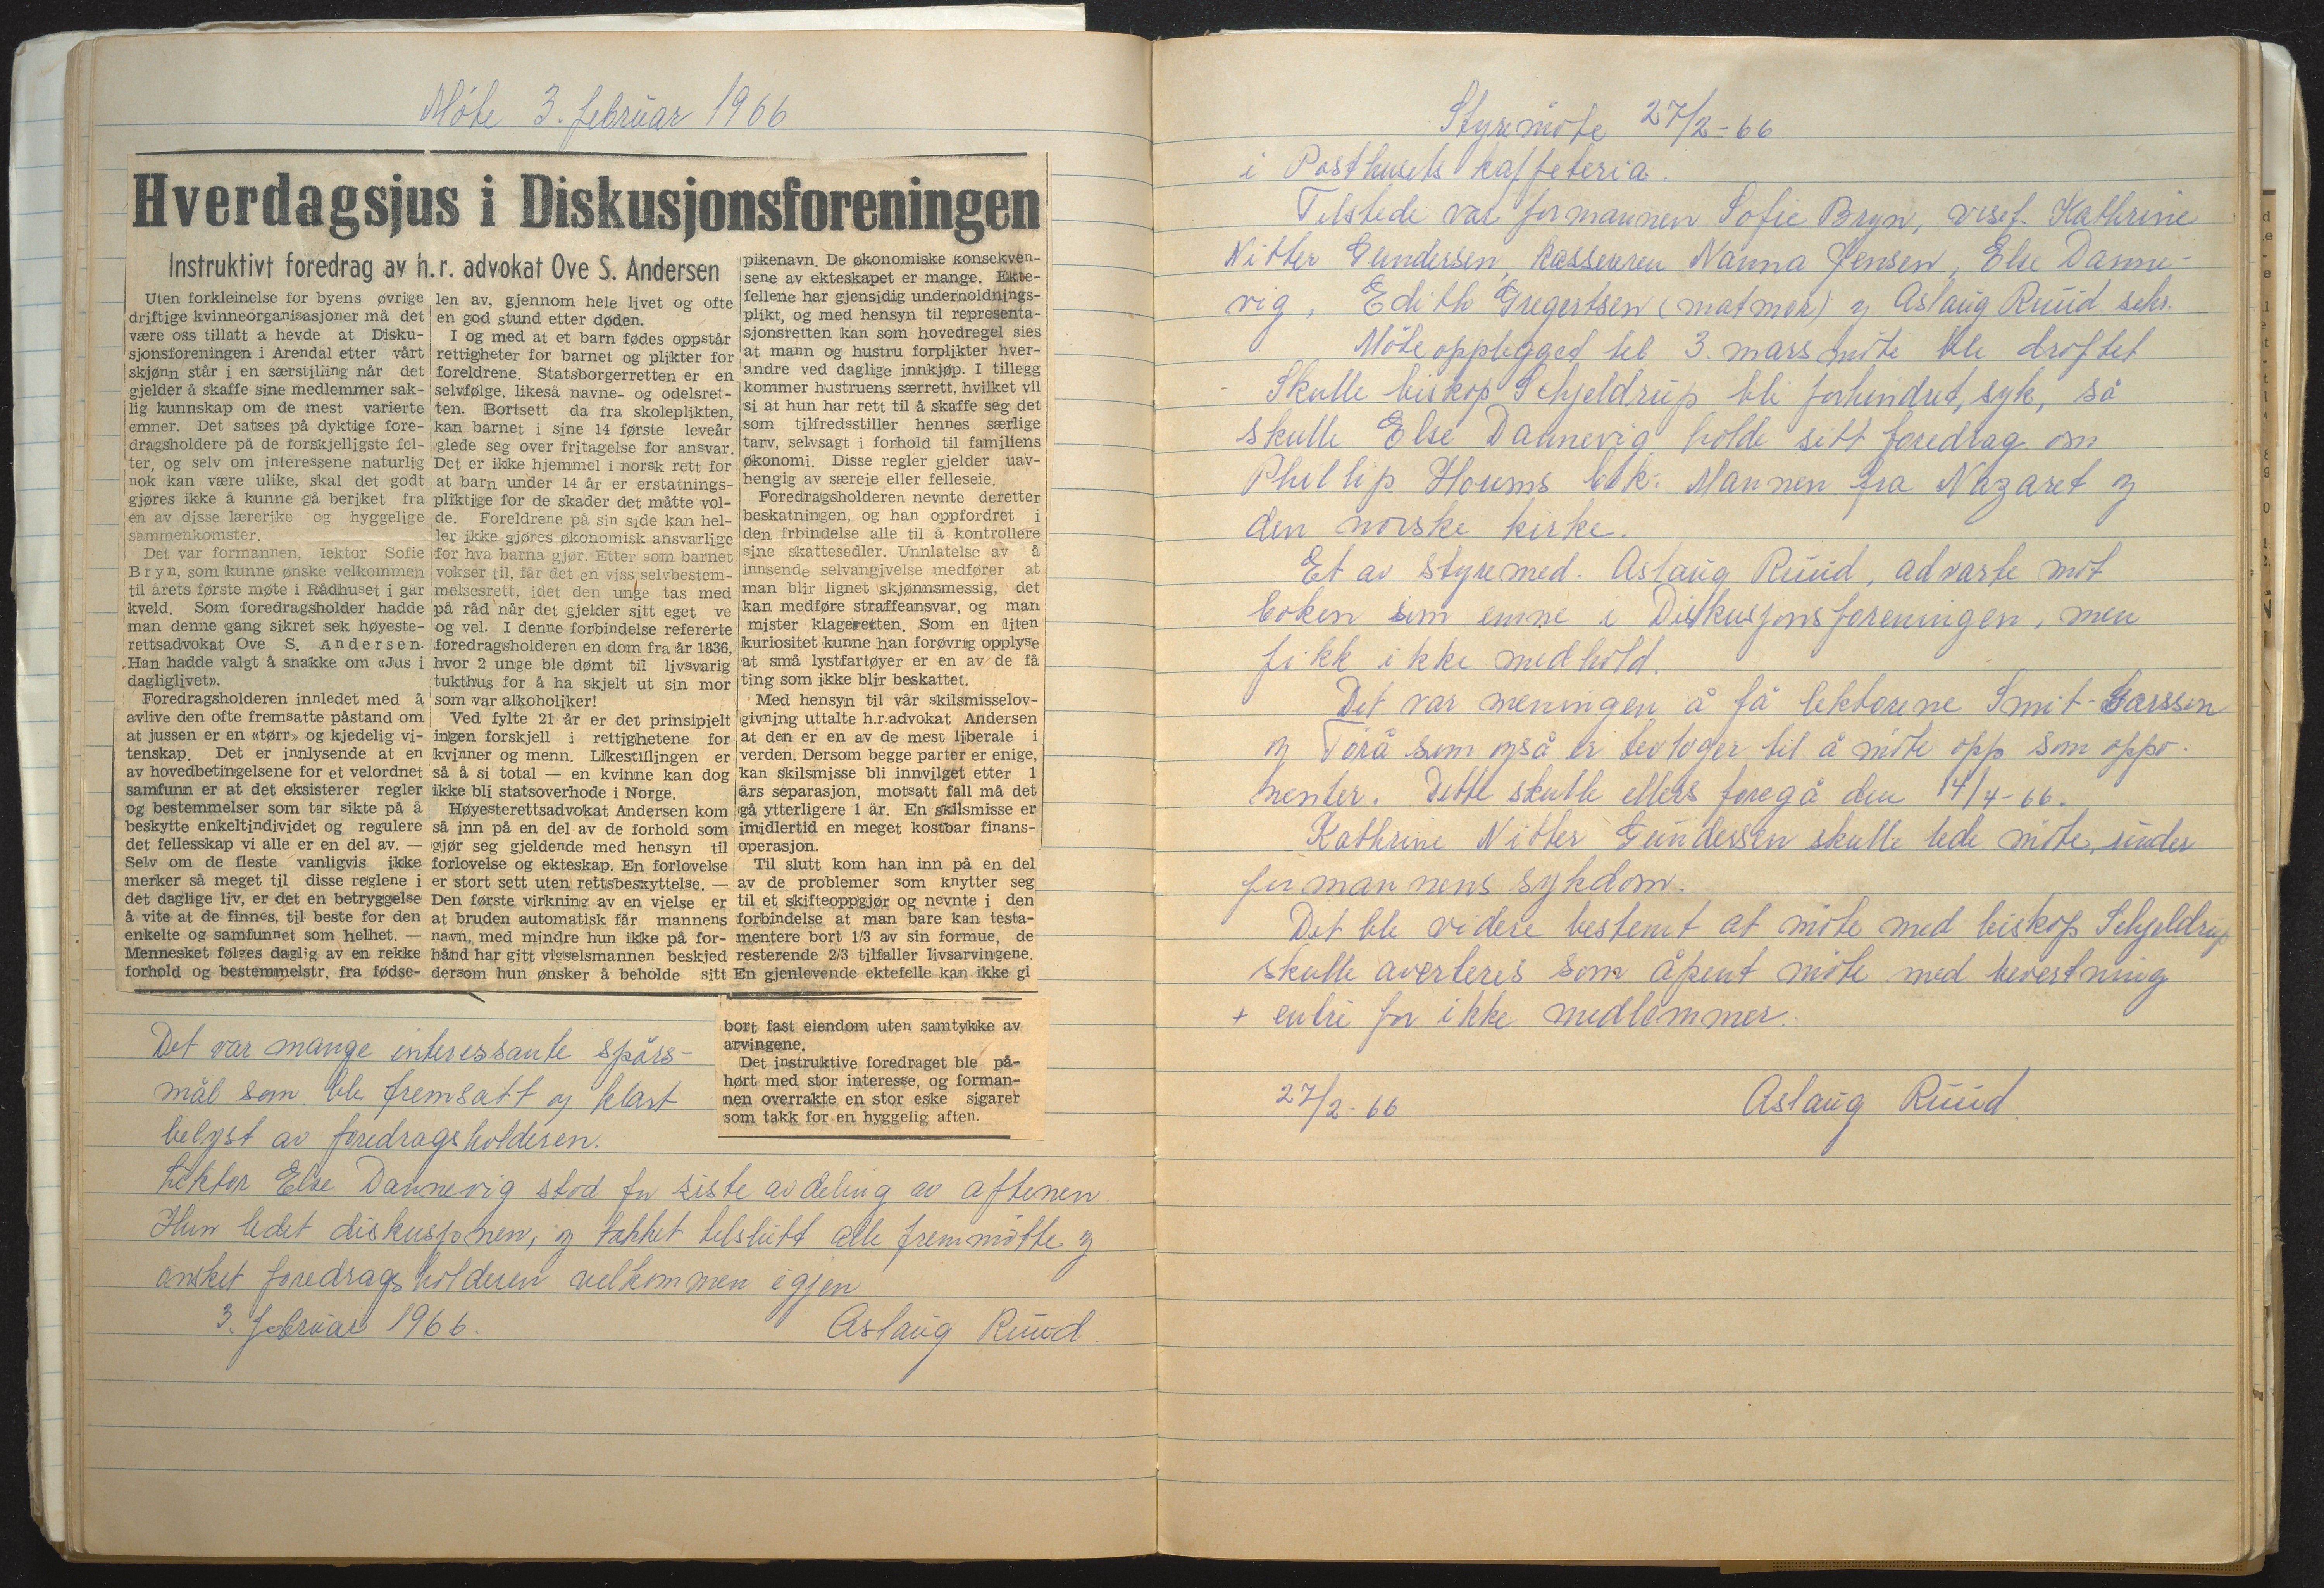 Møte 3. februar 1966
Hverdagsjus i Diskusjonsforeningen
Instruktivt foredrag av h.r. advokat Ove S. Andersen
Uten forkleinelse for byens øvrige
driftige kvinneorganisasjoner må det
være oss tillatt a hevde at Disku-
sjonsforeningen i Arendal etter vårt
skjønn står i en særstilling når det
gjelder å skaffe sine medlemmer sak-
lig kunnskap om de mest varierte
emner. Det satses på dyktige fore-
dragsholdere på de forskjelligste fel-
ter, og selv om interessene naturlig
nok kan være ulike, skal det godt
gjøres ikke å kunne gå beriket fra
en av disse lærerike og hyggelige
sammenkomster.
Det var formannen, lektor Sofie
Bryn, som kunne ønske velkommen
til årets første møte i Rådhuset i går
kveld. Som foredragsholder hadde
man denne gang sikret sek høyeste-
rettsadvokat Ove S. Andersen.
Han hadde valgt å snakke om «Jus i
dagliglivet».
Foredragsholderen innledet med å
avlive den ofte fremsatte påstand om
at jussen er en «tørr» og kjedelig vi-
tenskap. Det er innlysende at en
av hovedbetingelsene for et velordnet
samfunn er at det eksisterer regler
og bestemmelser som tar sikte på å
beskytte enkeltindividet og regulere
det fellesskap vi alle er en del av. —
Selv om de fleste vanligvis ikke
merker så meget til disse reglene i
det daglige liv, er det en betryggelse
å vite at de finnes, til beste for den
enkelte og samfunnet som helhet. —
Mennesket følges daglig av en rekke
forhold og bestemmelstr, fra fødse-
len av, gjennom hele livet og ofte
en god stund etter døden.
I og med at et barn fødes oppstår
rettigheter for barnet og plikter for
foreldrene. Statsborgerretten er en
selvfølge, likeså navne- og odelsret-
ten. Bortsett da fra skoleplikten,
kan barnet i sine 14 første leveår
glede seg over fritagelse for ansvar.
Det er ikke hjemmel i norsk rett for
at barn under 14 år er erstatnings-
pliktige for de skader det måtte vol-
de. Foreldrene på sin side kan hel-
ler ikke gjøres økonomisk ansvarlige
for hva barna gjør. Etter som barnet
vokser til, får det en viss selvbestem-
melsesrett, idet den unge tas med
på råd når det gjelder sitt eget ve
og vel. I denne forbindelse refererte
foredragsholderen en dom fra år 1836,
hvor 2 unge ble dømt til livsvarig
tukthus for å ha skjelt ut sin mor
som var alkoholiker!
Ved fylte 21 år er det prinsipielt
ingen forskjell i rettighetene for
kvinner og menn. Likestillingen er
så å si total — en kvinne kan dog
ikke bli statsoverhode i Norge.
Høyesterettsadvokat Andersen kom
så inn på en del av de forhold som
gjør seg gjeldende med hensyn til
forlovelse og ekteskap. En forlovelse
er stort sett uten rettsbeskyttelse. —
Den første virkning av en vielse er
at bruden automatisk får mannens
navn, med mindre hun ikke på for-
hånd har gitt vigselsmannen beskjed
dersom hun ønsker å beholde sitt
pikenavn. De økonomiske konsekven-
sene av ekteskapet er mange. Ekte-
fellene har gjensidig undernoldnings-
plikt, og med hensyn til representa-
sjonsretten kan som hovedregel sies
at mann og hustru forplikter hver-
andre ved daglige innkjøp. I tillegg
kommer hustruens særrett, hvilket vil
si at hun har rett til å skaffe seg det
som tilfredsstiller hennes særlige
tarv, selvsagt i forhold til familiens
økonomi. Disse regler gjelder uav-
hengig av særeje eller felleseie.
Foredragsholderen nevnte deretter
beskatningen, og han oppfordret i
den frbindelse alle til å kontrollere
sine skattesedler. Unnlatelse av å
innsende selvangivelse medfører at
man blir lignet skjønnsmessig, det
kan medføre straffeansvar, og man
mister klageretten. Som en liten
kuriositet kunne han forøvrig opplyse
at små lystfartøyer er en av de få
ting som ikke blir beskattet.
Med hensyn til vår skilsmisselov-
givning uttalte h.r.advokat Andersen
at den er en av de mest liberale i
verden. Dersom begge parter er enige,
kan skilsmisse bli innvilget etter 1
års separasjon, motsatt fall må det
gå ytterligere 1 år. En skilsmisse er
imidlertid en meget kostbar finans-
operasjon.
Til slutt kom han inn på en del
av de problemer som knytter seg
til et skifteoppgjør og nevnte i den
forbindelse at man bare kan testa-
mentere bort 1/3 av sin formue, de
resterende 2/3 tilfaller livsarvingene.
En gjenlevende ektefelle kan ikke gi
bort fast eiendom uten samtykke av
arvingene.
Det instruktive foredraget ble på-
hørt med stor interesse, og forman-
nen overrakte en stor eske sigarer
som takk for en hyggelig aften.
Det var mange interessante spørs-
mål som ble fremsatt og klart
belyst av foredragsholderen.
Lektor Else Dannevig stod for siste avdeling av aftenen
Hun ledet diskusjonen, og takket tilslutt alle fremmøtte og
ønsket foredragsholderen velkommen igjen
3. februar 1966. Aslaug Ruud.
Styremøte 27/2-66
i Posthusets kaffeteria.
Tilstede var formannen Sofie Bryn, visef. Kathrine
Nitter Gundersen, kassereren Nanna Jensen, Else Danne-
vig, Edith Gregertsen (matmor) og Aslaug Ruud sekr.
Møteopplegget til 3. mars møte ble drøftet
- Skulle biskop Schjeldrup bli forhindret, syk, så
skulle Else Dannevig holde sitt foredrag om
Phillip Houms bok: Mannen fra Nazaret og
den norske kirke.
Et av styremed. Aslaug Ruud, advarte mot
boken som emne i Diskusjonsforeningen, men
fikk ikke medhold.
Det var meningen å få lektorene Smit-Garssen
og Torå som også er teologer til å møte opp som oppo-
nenter. Dette skulle ellers foregå den 14/4-66.
Kathrine Nitter Gundersen skulle lede møte, under
formannens sykdom.
Det ble videre bestemt at møte med biskop Schjeldrup
skulle averteres som åpent møte med bevertning
+ entré for ikke medlemmer.
27/2-66 Aslaug Ruud.